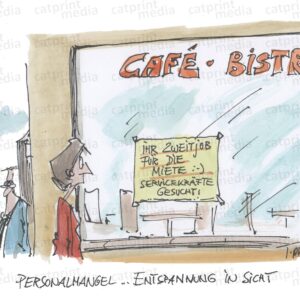 CAFÉ · BISTR
IHR ZWEITJOB
FÜR DIE
MIETE :-)
SERVICEKRÄFTE
GESUCHT!
PERSONALMANGEL .. ENTSPANNUNG IN SICHT
catprint
media